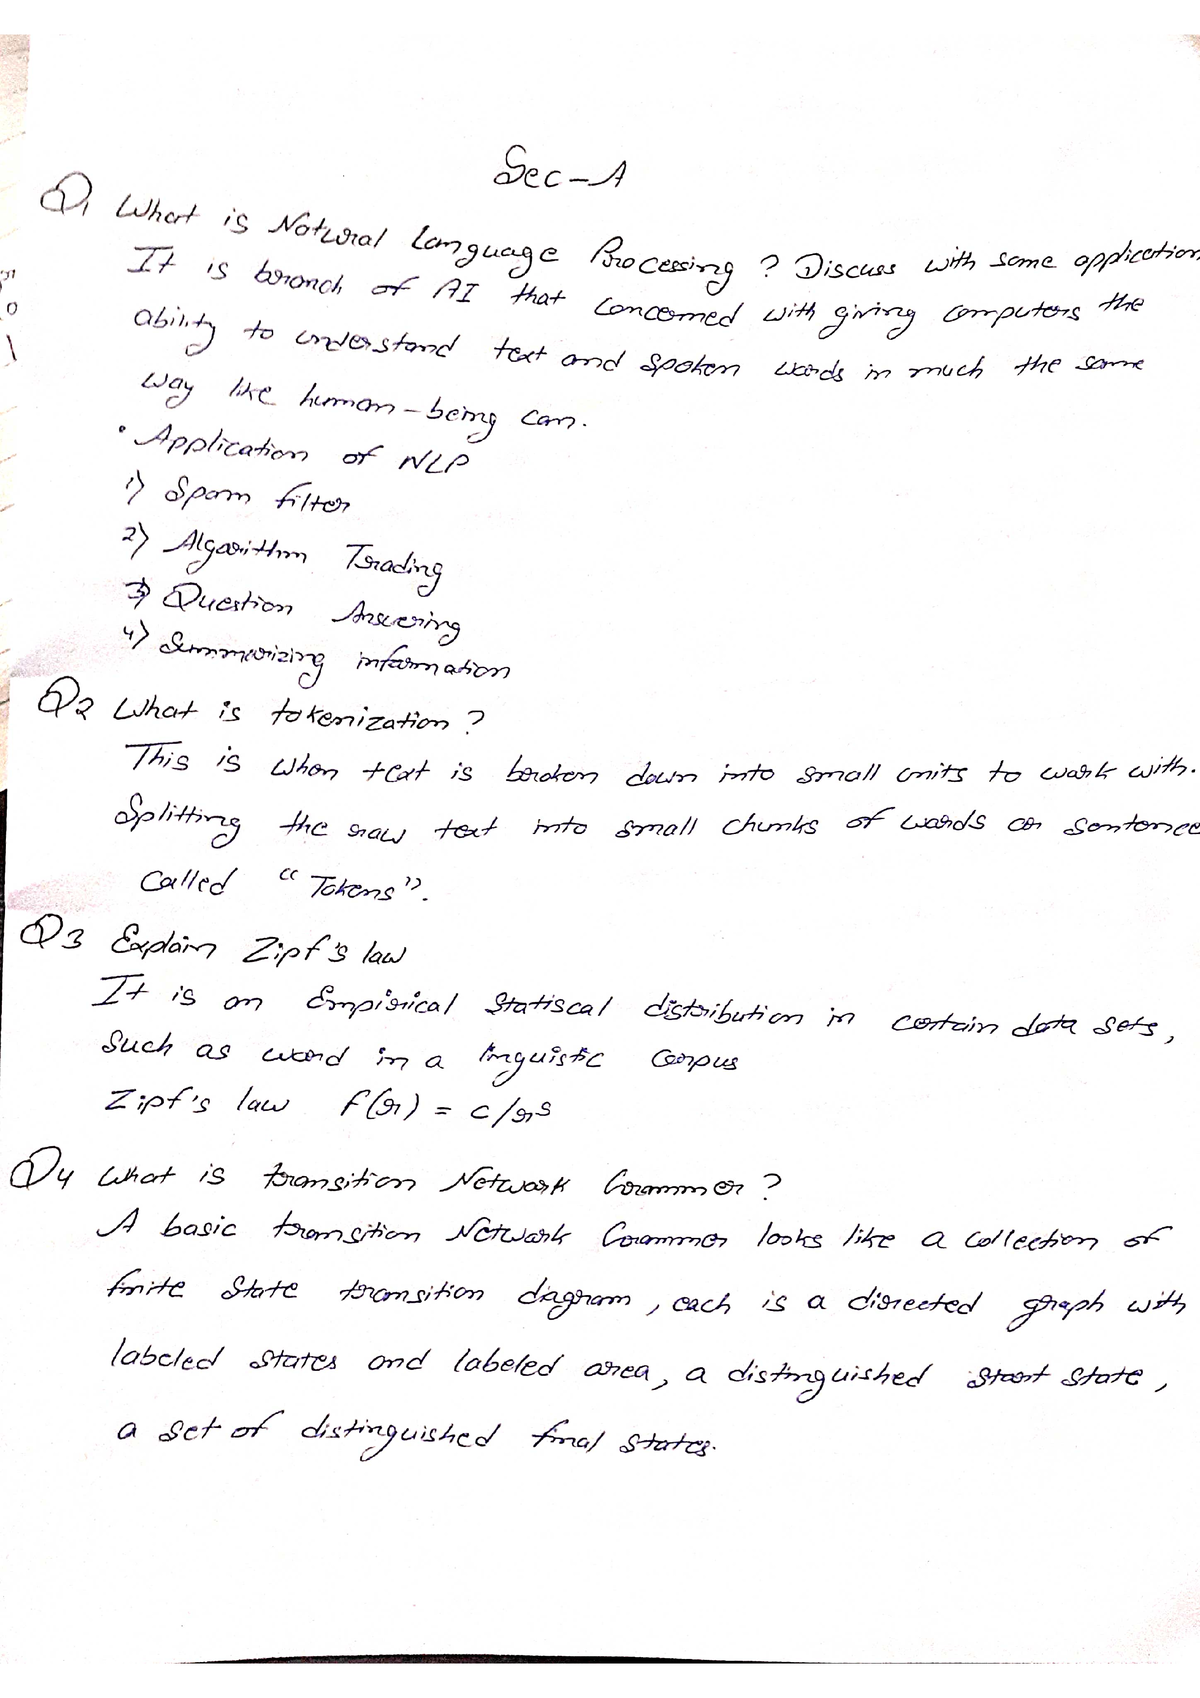 Sec-A
Q1 What is Natural Language Processing? Discuss with some application
It is branch of AI that concerned with giving computers the
ability to understand text and spoken words in much the same
way like human-being can.
• Application of NLP
1) Spam filter
2) Algorithm Trading
3) Question Answering
4) Summarizing information
Q2 What is tokenization?
This is when text is broken down into small units to work with.
Splitting the raw text into small chunks of words or sentence
called "Tokens".
Q3 Explain Zipf's law
It is an Empirical Statiscal distribution in certain data sets,
Such as word in a linguistic corpus
Zipf's law f(r) = c/r^s
Q4 What is transition Network Grammer?
A basic transition Network Grammer looks like a collection of
finite State transition diagram, each is a directed graph with
labeled states and labeled area, a distinguished start state,
a set of distinguished final states.